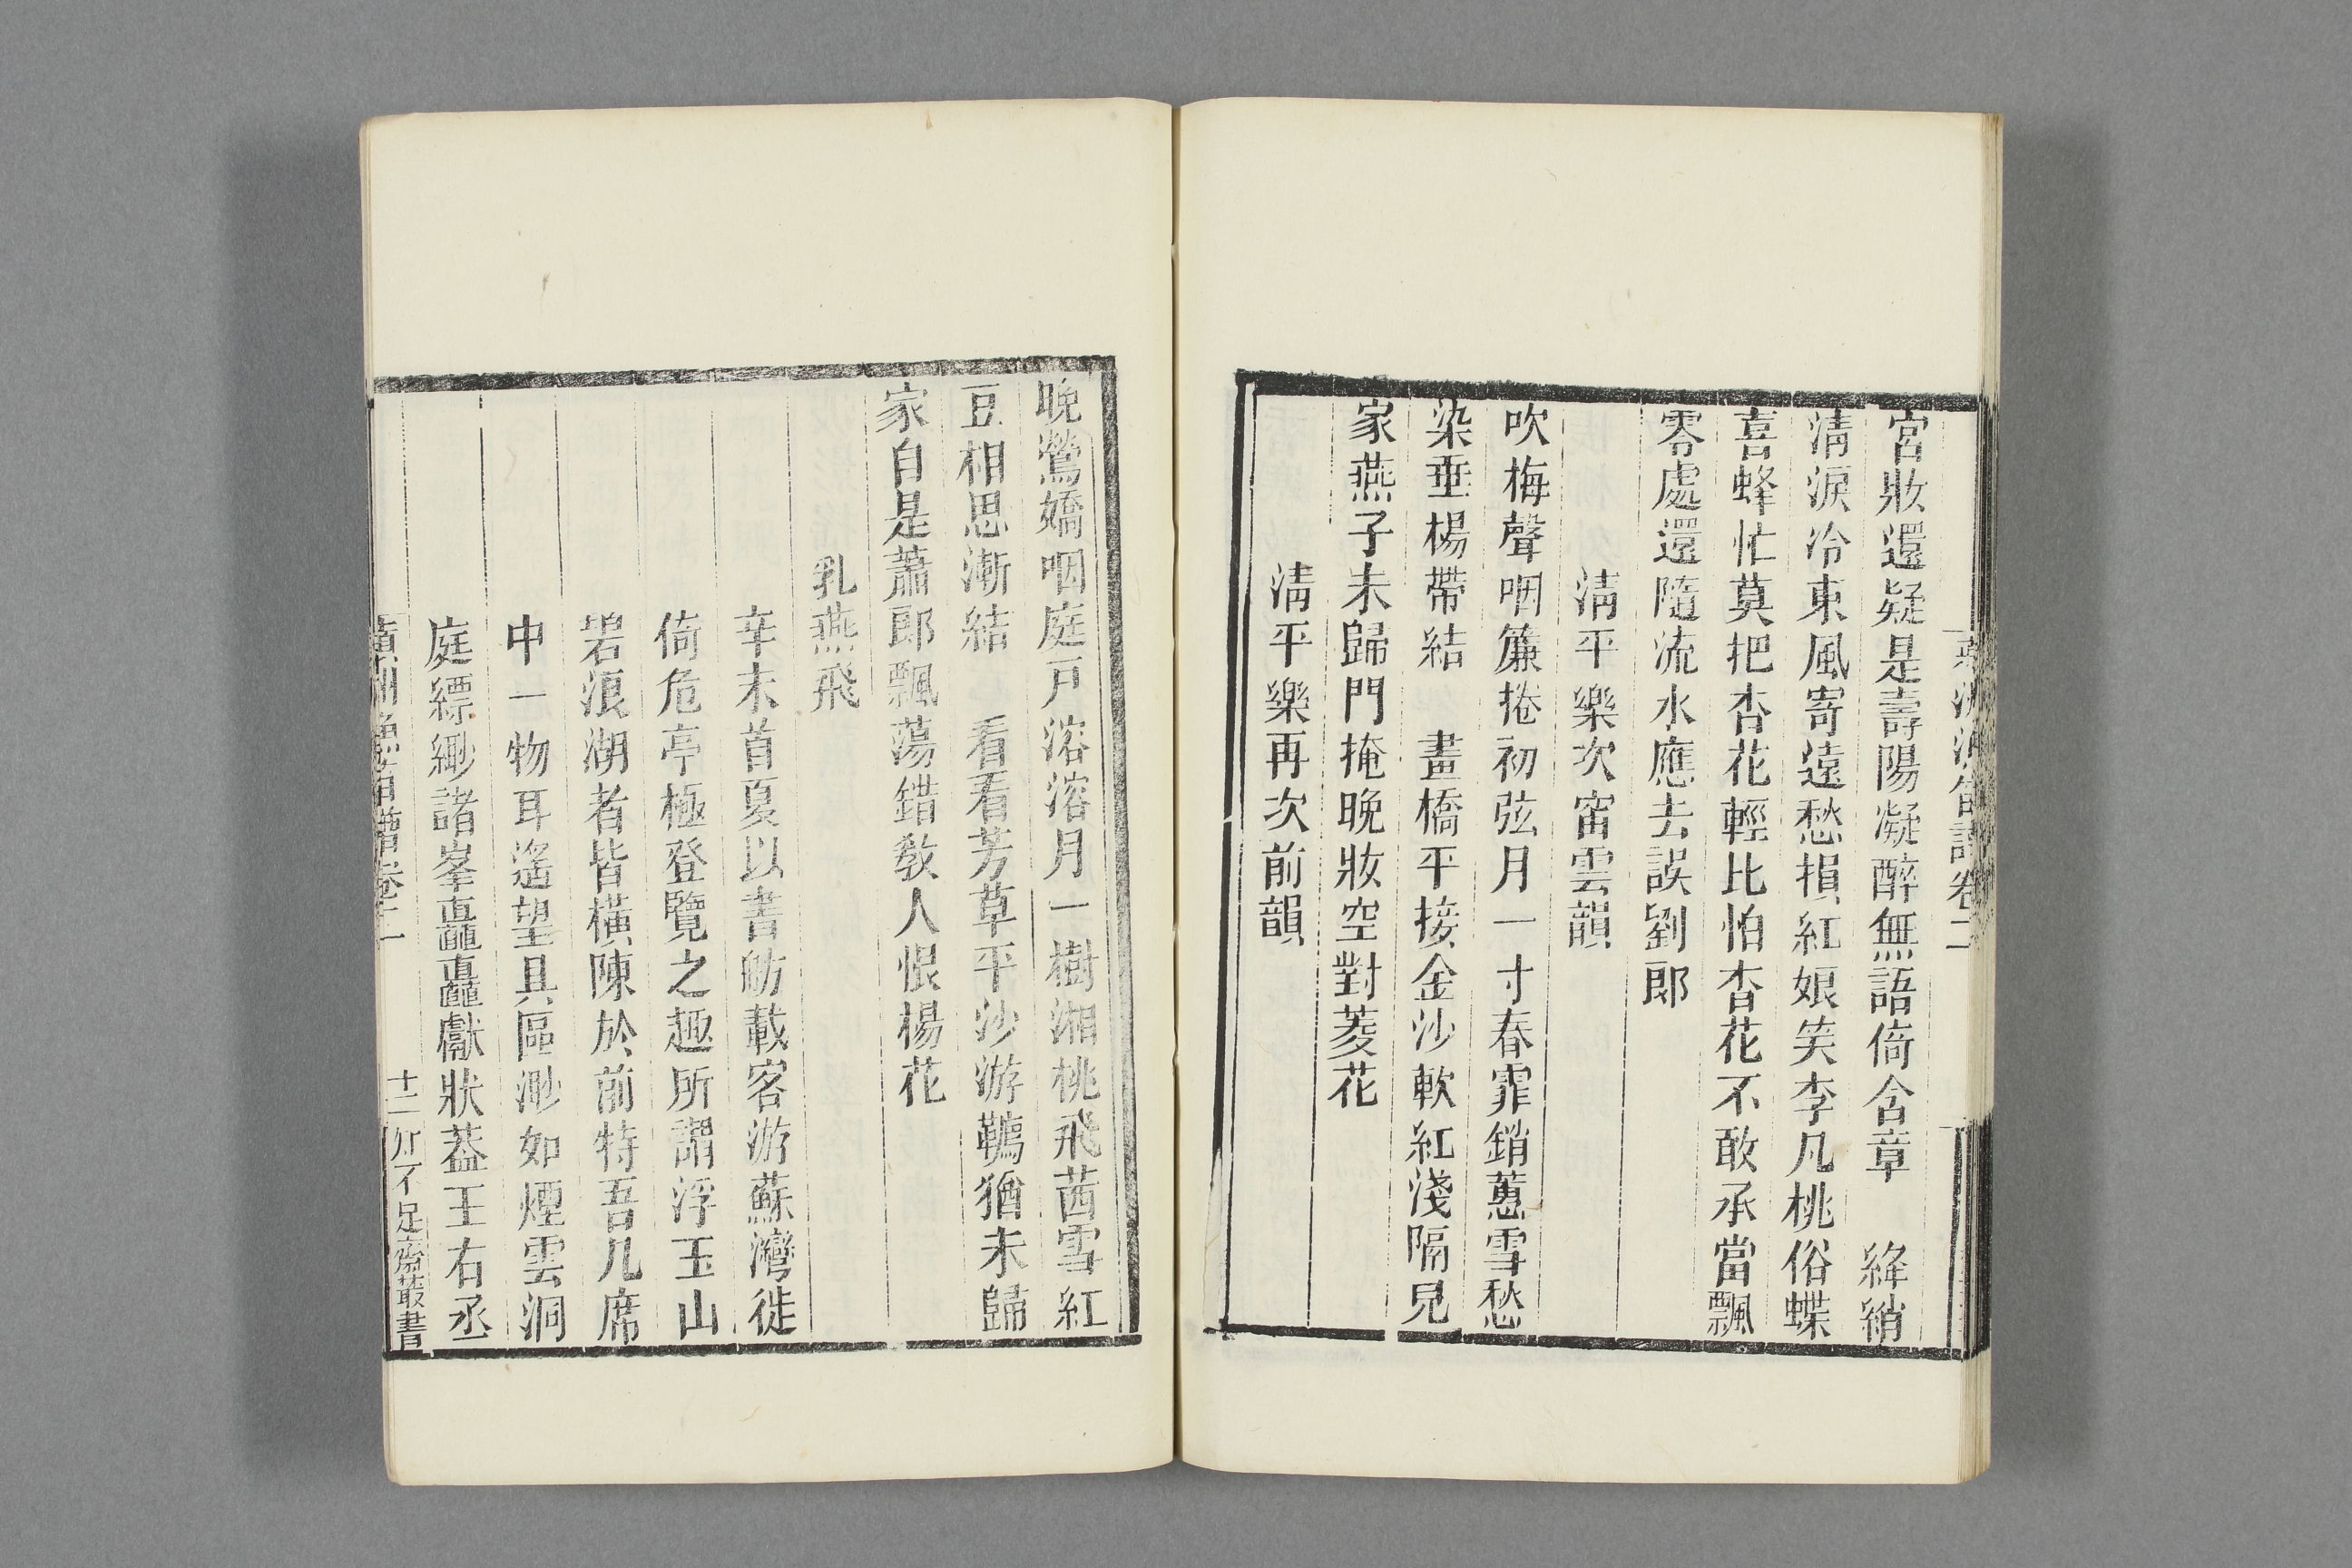 宮妝還疑是壽陽凝醉無語倚含章　絳綃
清淚冷東風寄遠愁損紅娘笑李凡桃俗蝶
喜蜂忙莫把杏花輕比怕杏花不敢承當飄
零處還隨流水應去誤劉郎
清平樂次甯雲韻
吹梅聲咽簾捲初弦月一寸春霏銷蕙雪愁
染垂楊帶結　畫橋平接金沙軟紅淺隔兒
家燕子未歸門掩晚妝空對菱花
清平樂再次前韻
晚鶯嬌咽庭戸溶溶月一樹湘桃飛茜雪紅
豆相思漸結　看看芳草平沙游韉猶未歸
家自是蕭郎飄蕩錯教人恨楊花
乳燕飛
辛未首夏以書舫載客游蘇灣徙
倚危亭極登覽之趣所謂浮玉山
碧浪湖者皆橫陳於前特吾几席
中一物耳遙望具區渺如煙雲洞
庭縹緲諸峯矗矗獻狀葢王右丞
蘋洲漁笛譜卷二
十二　知不足齋叢書